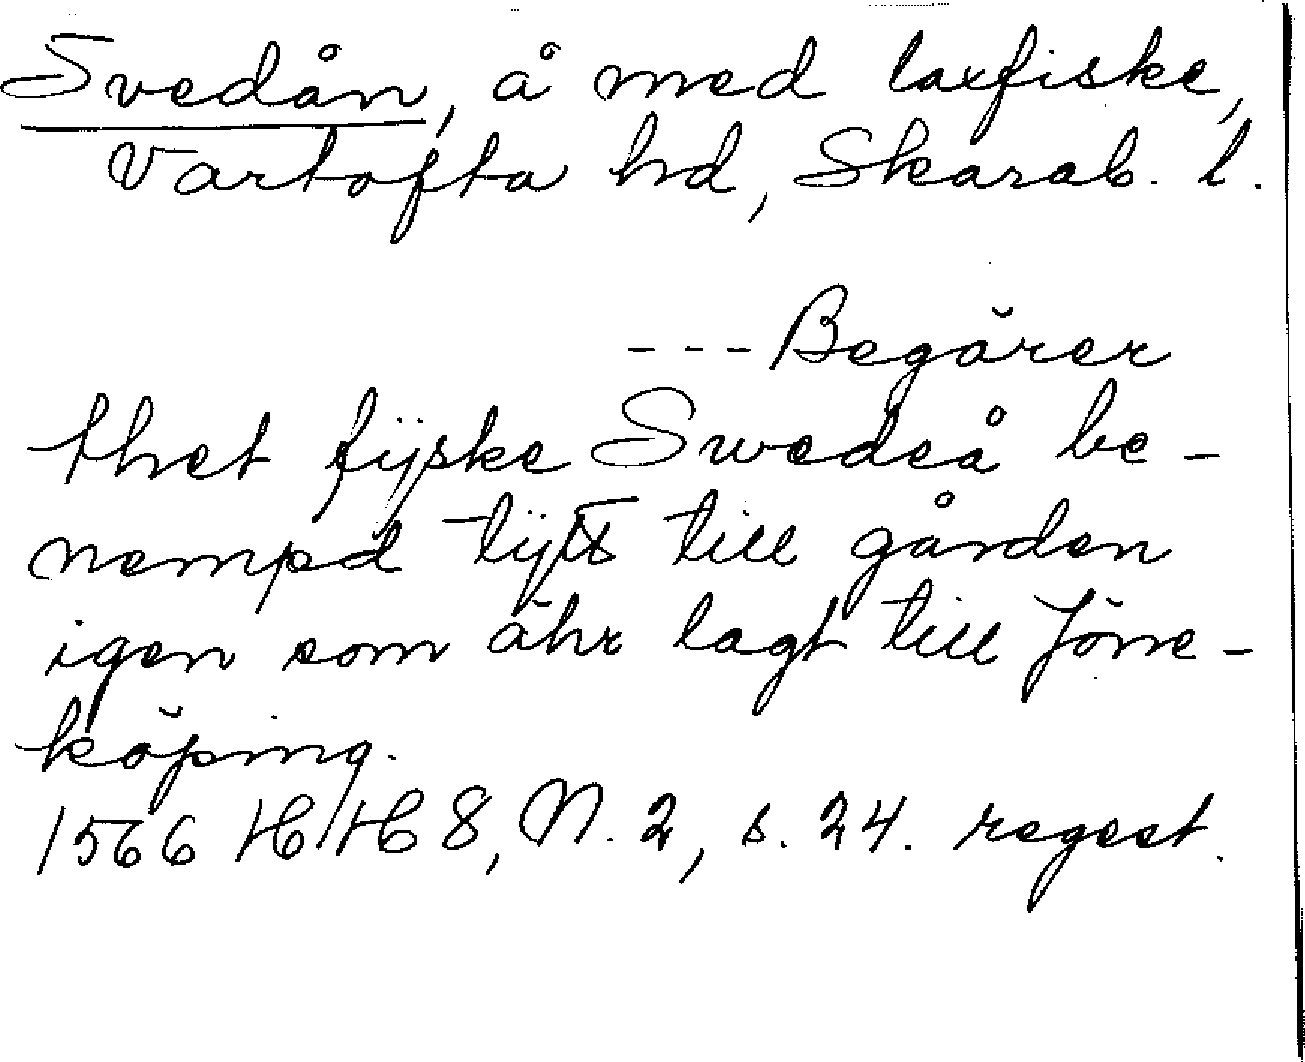 Svedån, å med laxfiske,
Vartofta hd, Skarab. l.
--- Begärer
thet fijske Swedeå be-
nempd till gården
igen som ähr lagt till Jöne-
köping.
1566 HH 8, N. 2, s. 24. regest.